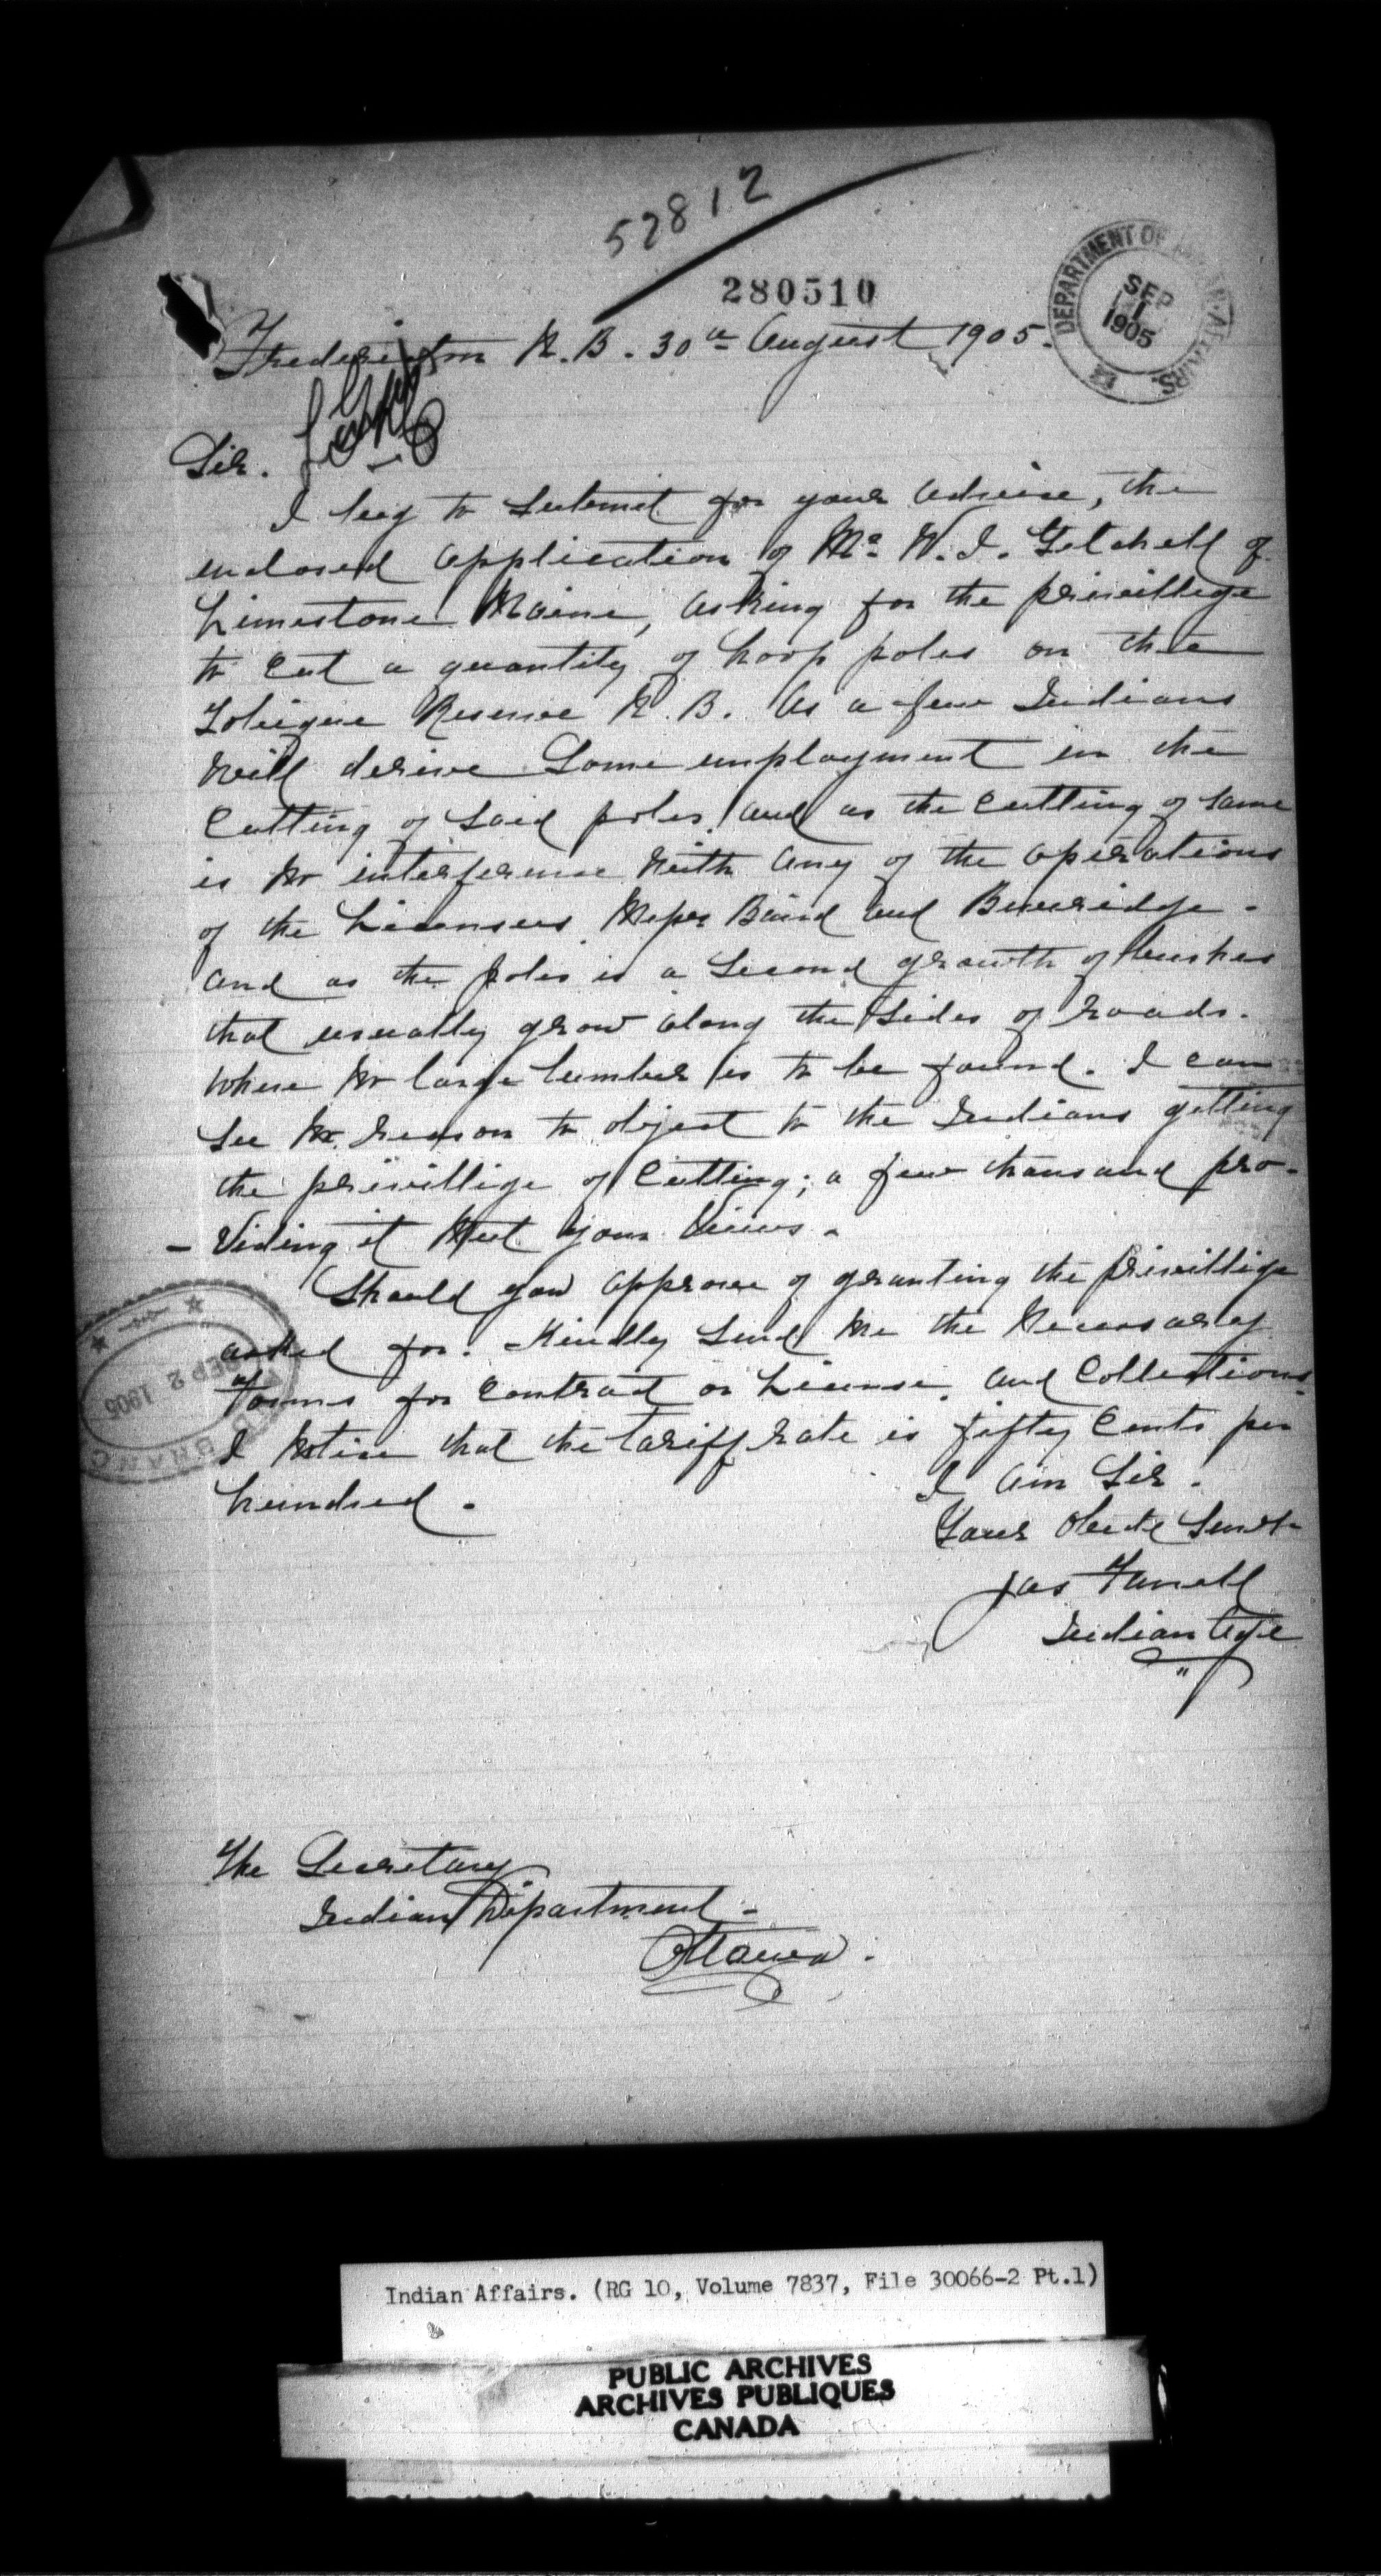 52812
280510
DEPARTMENT OF INDIAN AFFAIRS.
SEP
1
1905
Fredericton N.B. 30th August 1905.
Sir.
I beg to submit for your advise, the
enclosed application of Mr. W. I. Getchell of
Limestone Maine, asking for the privillege
to cut a quantity of hoop poles on the
Tobique Reserve N.B. As a few Indians
will derive some employment in the
cutting of said poles, and as the cutting of same
is no interference with any of the operations
of the Licensees Messrs Baird and Beveridge -
and as the poles is a second growth of bushes
that usually grow along the sides of roads.
where no large lumber is to be found. I can
see no reason to object to the Indians getting
the privillige of cutting; a few thousand pro-
- viding it meet your views.
Should you approve of granting the privillige
asked for. Kindly send me the necessary
Forms for contract or License, and Collections.
I notice that the tariff rate is fifty cents per
hundred.
I am Sir.
Your Obedt Servt
Jas Farrell
Indian Agt
SEP 2 1905
The Secretary
Indian Department -
Ottawa.
Indian Affairs. (RG 10, Volume 7837, File 30066-2 Pt.1)
PUBLIC ARCHIVES
ARCHIVES PUBLIQUES
CANADA